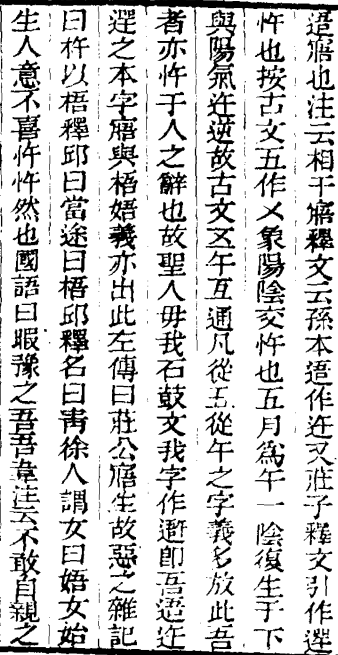 逜寤也注云相干寤釋文云孫本逜作迕又莊子釋文引作遻
忤也按古文五作㐅象陽陰交忤也五月爲午一陰復生于下
與陽氣迕逆故古文五午互通凡從五從午之字義多放此吾
者亦忤于人之辭也故聖人毋我石鼓文我字作䢸即吾逜迕
遻之本字寤與梧娪義亦出此左傳曰莊公寤生故惡之雜記
曰杵以梧釋邱曰當途曰梧邱釋名曰靑徐人謂女曰娪女始
生人意不喜忤忤然也國語曰暇豫之吾吾韋注云不敢自親之